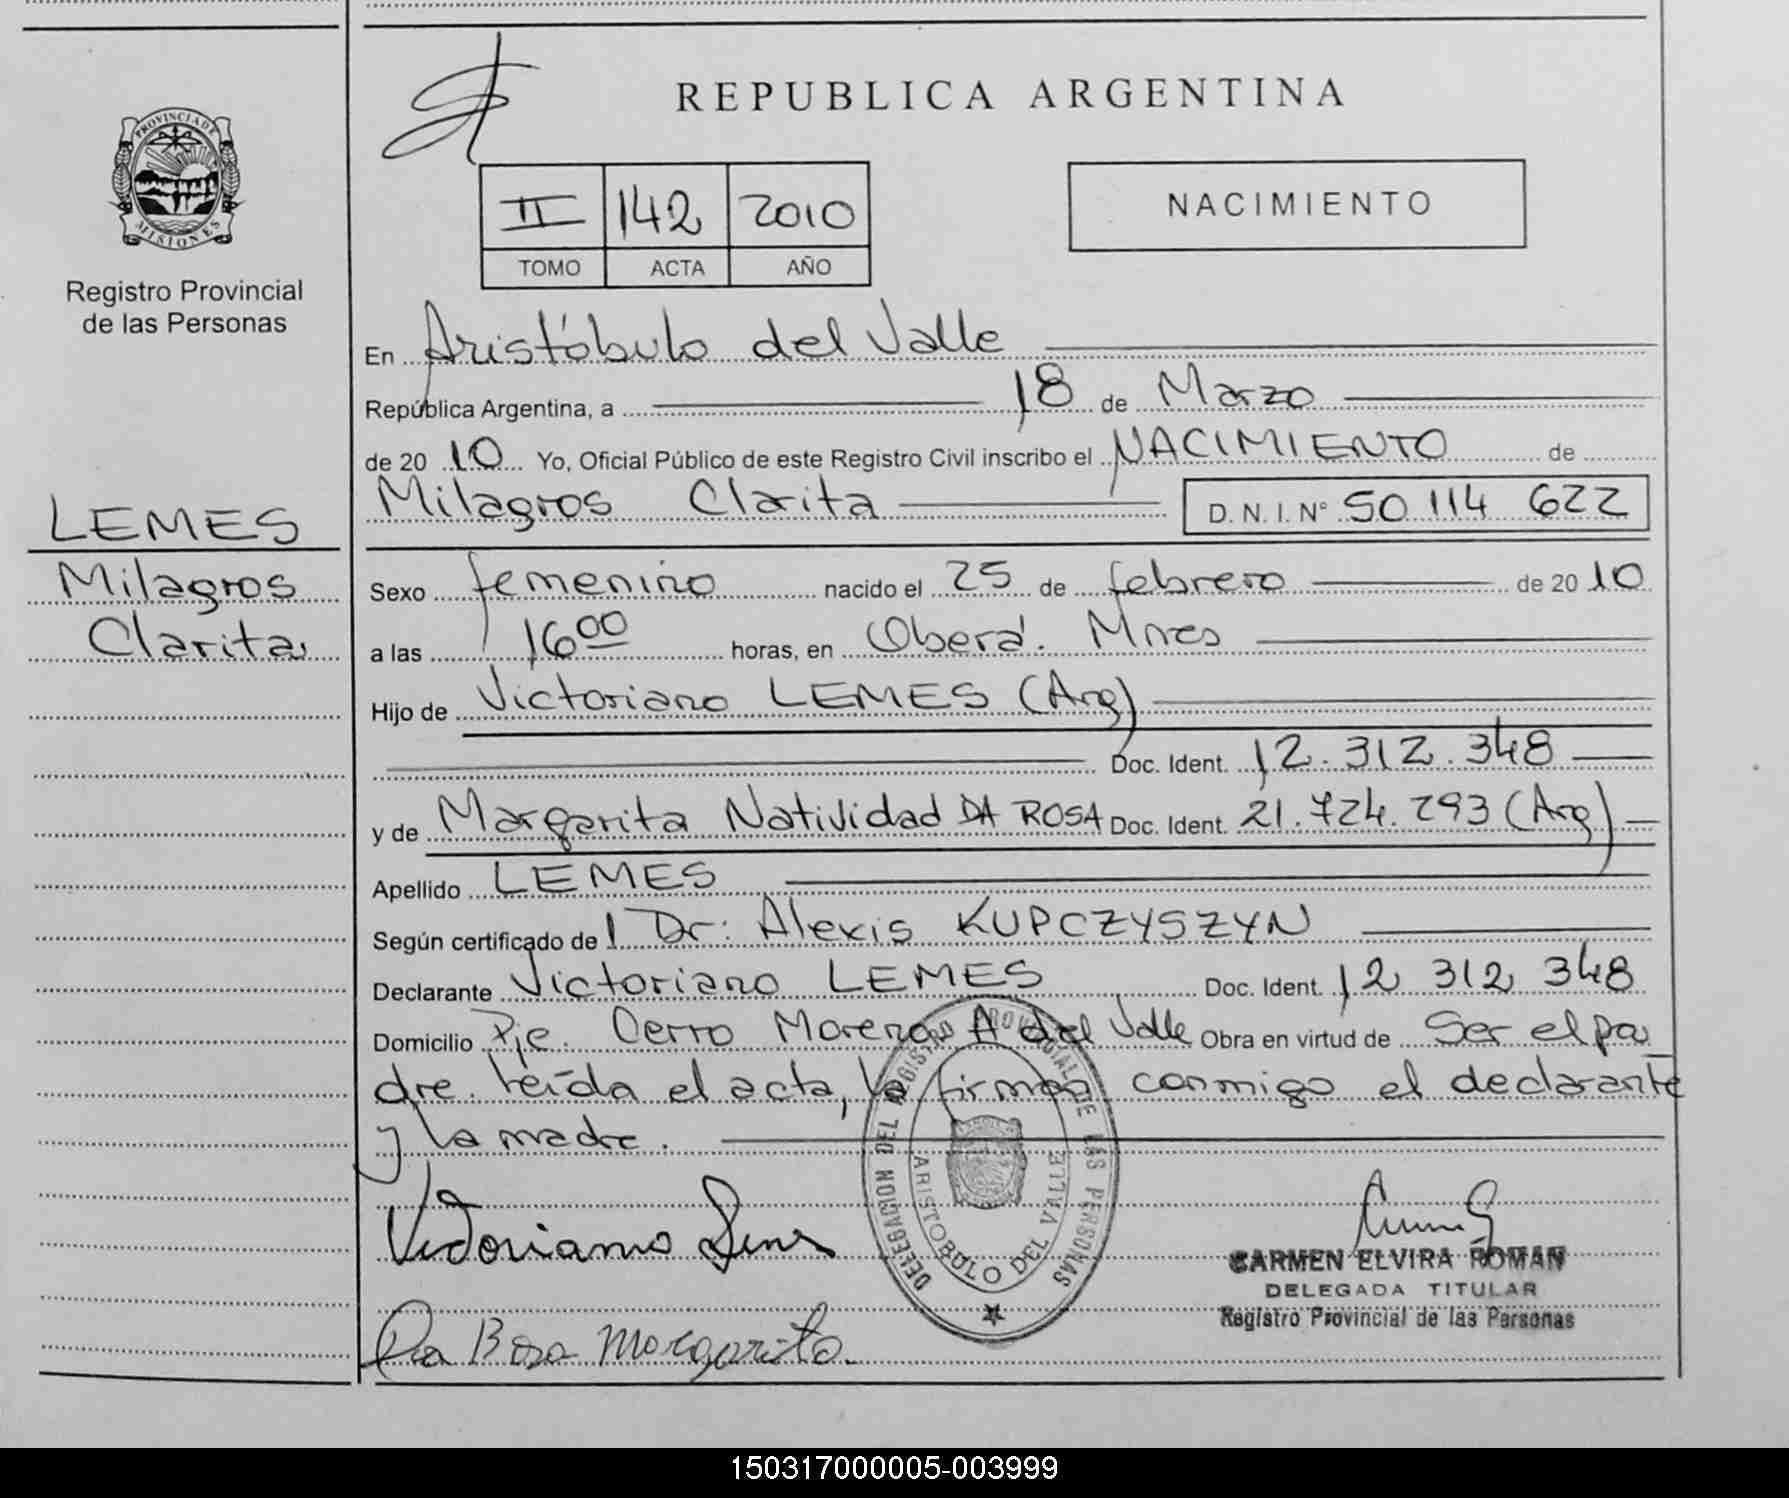 REPUBLICA ARGENTINA
PROVINCIA DE
MISIONES
Registro Provincial
de las Personas
II 142 2010
TOMO ACTA AÑO
NACIMIENTO
En Aristóbulo del Valle
República Argentina, a 18 de Marzo
de 20 10 Yo, Oficial Público de este Registro Civil inscribo el NACIMIENTO de
Milagros Clarita D.N.I. Nº 50 114 622
LEMES
Milagros
Clarita
Sexo femenino nacido el 25 de febrero de 20 10
a las 16 00 horas, en Oberá. Mnes
Hijo de Victoriano LEMES (Arg)
Doc. Ident. 12.312.348
y de Margarita Natividad DA ROSA Doc. Ident. 21.724.293 (Arg)
Apellido LEMES
Según certificado de Dr: Alexis KUPCZYSZYN
Declarante Victoriano LEMES Doc. Ident. 12 312 348
Domicilio Pje. Cerro Moreno A del Valle Obra en virtud de Ser el pa
dre. leída el acta, la firman conmigo el declarante
y la madre.
DELEGACION DEL REGISTRO PROVINCIAL DE LAS PERSONAS
ARISTOBULO DEL VALLE
Victoriano
CARMEN ELVIRA ROMAN
DELEGADA TITULAR
Registro Provincial de las Personas
Da Rosa Margarita
150317000005-003999